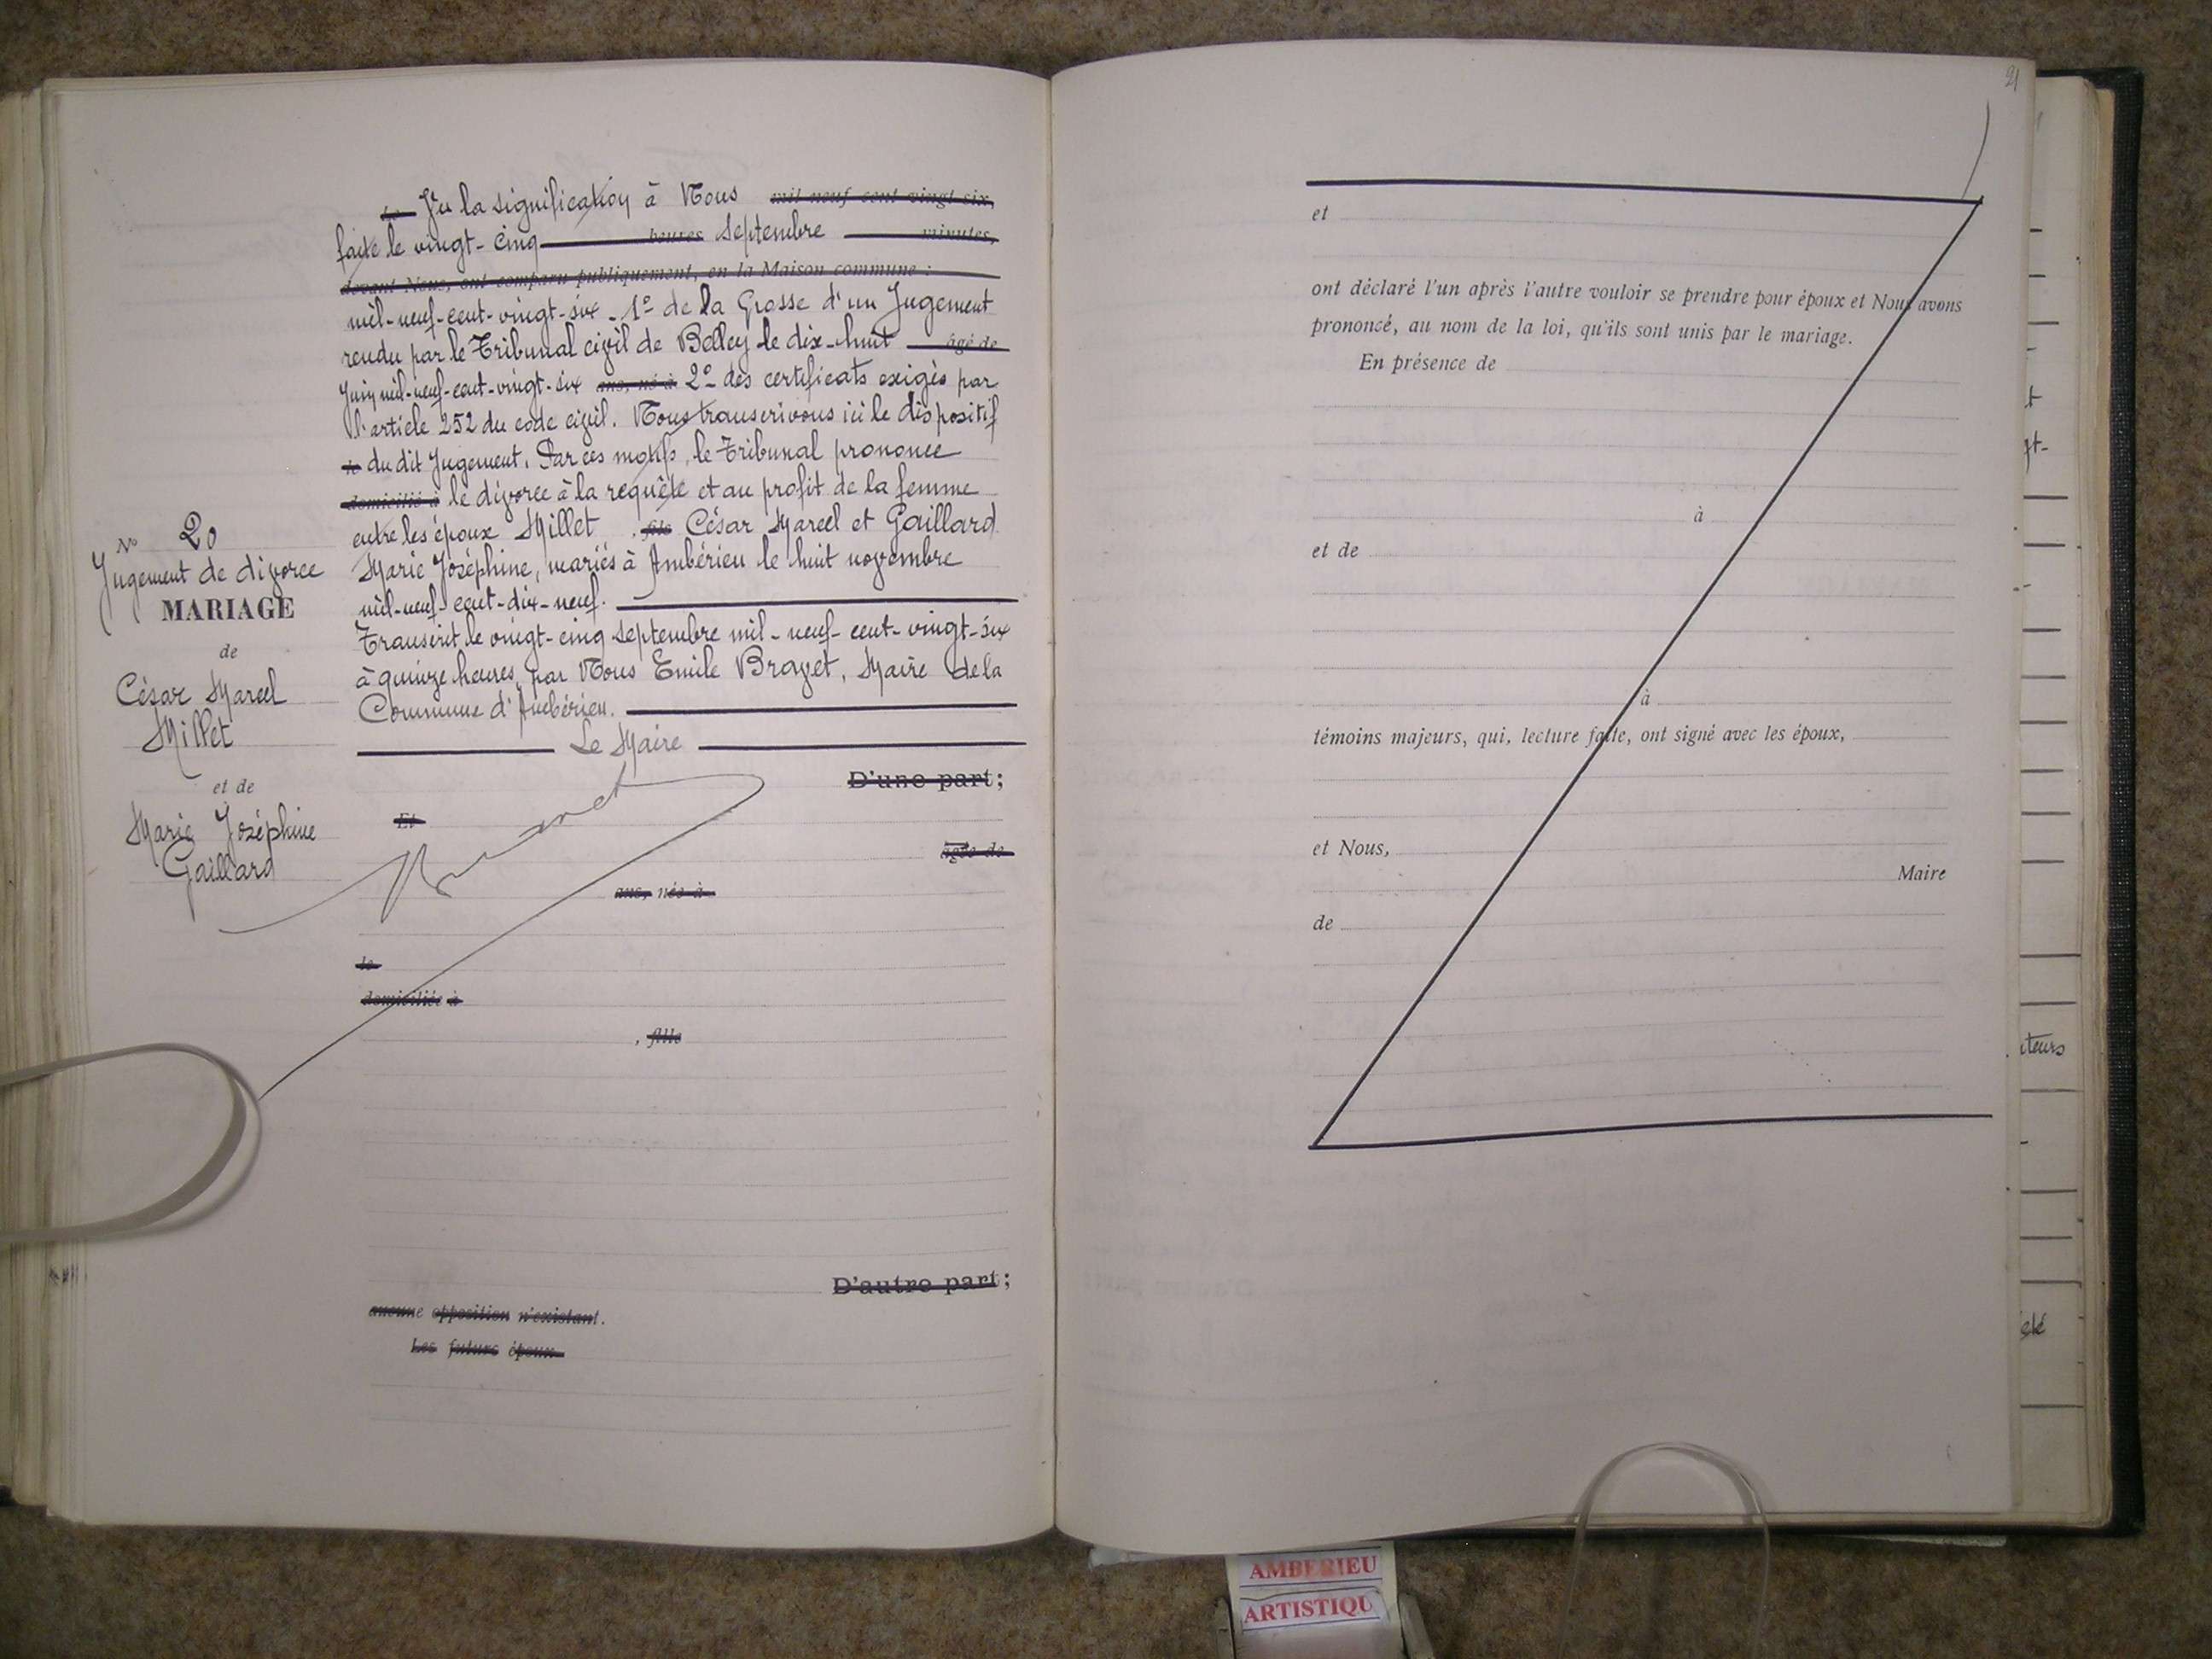 N° 20
Jugement de divorce
MARIAGE
de
César Marcel
Millet
et de
Marie Joséphine
Gaillard
le Vu la signification à Nous mil neuf cent vingt-six,
faite le vingt-cinq heures Septembre minutes,
devant Nous, ont comparu publiquement, en la Maison commune :
mil-neuf-cent-vingt-six. 1° de la Grosse d'un Jugement
rendu par le Tribunal civil de Belley le dix-huit âgé de
Juin mil-neuf-cent-vingt-six ans, né à 2° des certificats exigés par
l'article 252 du code civil. Nous transcrivons ici le dispositif
le du dit Jugement. Par ces motifs, le Tribunal prononce
domicilié à le divorce à la requête et au profit de la femme
entre les époux Millet, fils César Marcel et Gaillard
Marie Joséphine, mariés à Ambérieu le huit novembre
mil-neuf-cent-dix-neuf.
Transcrit le vingt-cinq septembre mil-neuf-cent-vingt-six
à quinze heures, par Nous Emile Bravet, Maire de la
Commune d'Ambérieu.
Le Maire
D'une part ;
Et
âgée de
ans, née à
le
domiciliée à
, fille
D'autre part ;
aucune opposition n'existant.
Les futurs époux
21
et
ont déclaré l'un après l'autre vouloir se prendre pour époux et Nous avons
prononcé, au nom de la loi, qu'ils sont unis par le mariage.
En présence de
à
et de
à
témoins majeurs, qui, lecture faite, ont signé avec les époux,
et Nous,
Maire
de
teurs
AMBERIEU
ARTISTIQU